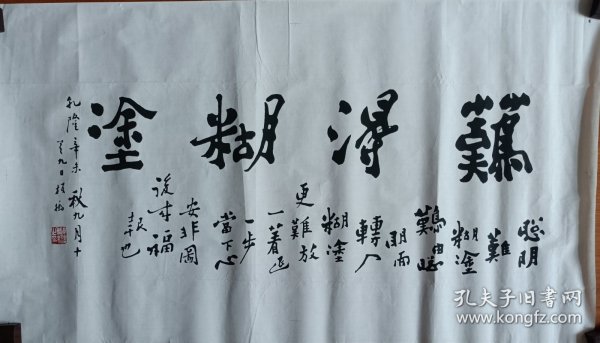 難得糊塗
聰明
難
糊塗
難由聰
明而
轉入
糊塗
更難放
一著退
一步
當下心
安非圖
後來福
報也
乾隆辛未秋九月十
有九日板橋
孔夫子旧书网
www.kongfz.com